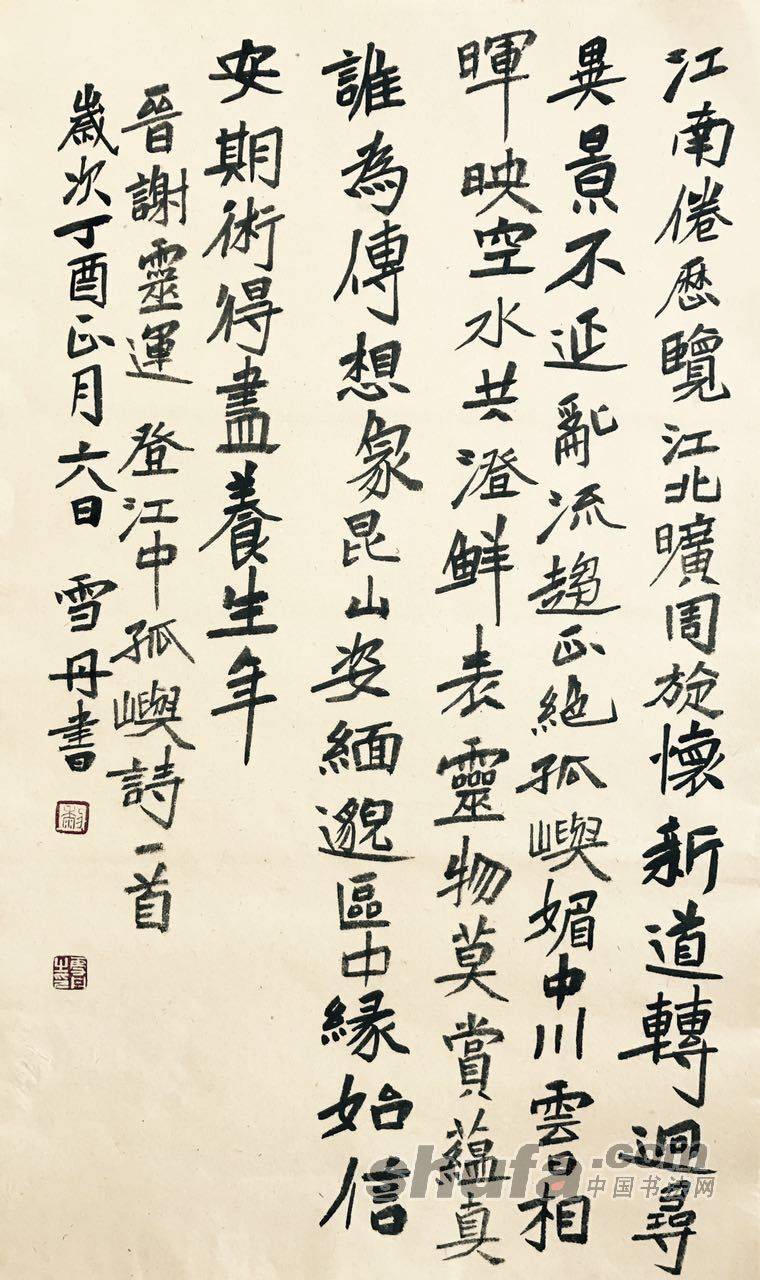 江南倦歷覽江北曠周旋懷新道轉迥尋
異景不延亂流趨正絶孤嶼媚中川雲日相
暉映空水共澄鮮表靈物莫賞蘊真
誰為傳想象昆山姿緬邈區中緣始信
安期術得盡養生年
晉謝靈運 登江中孤嶼詩一首
歲次丁酉正月六日 雪丹書
shufa.com
中国书法网